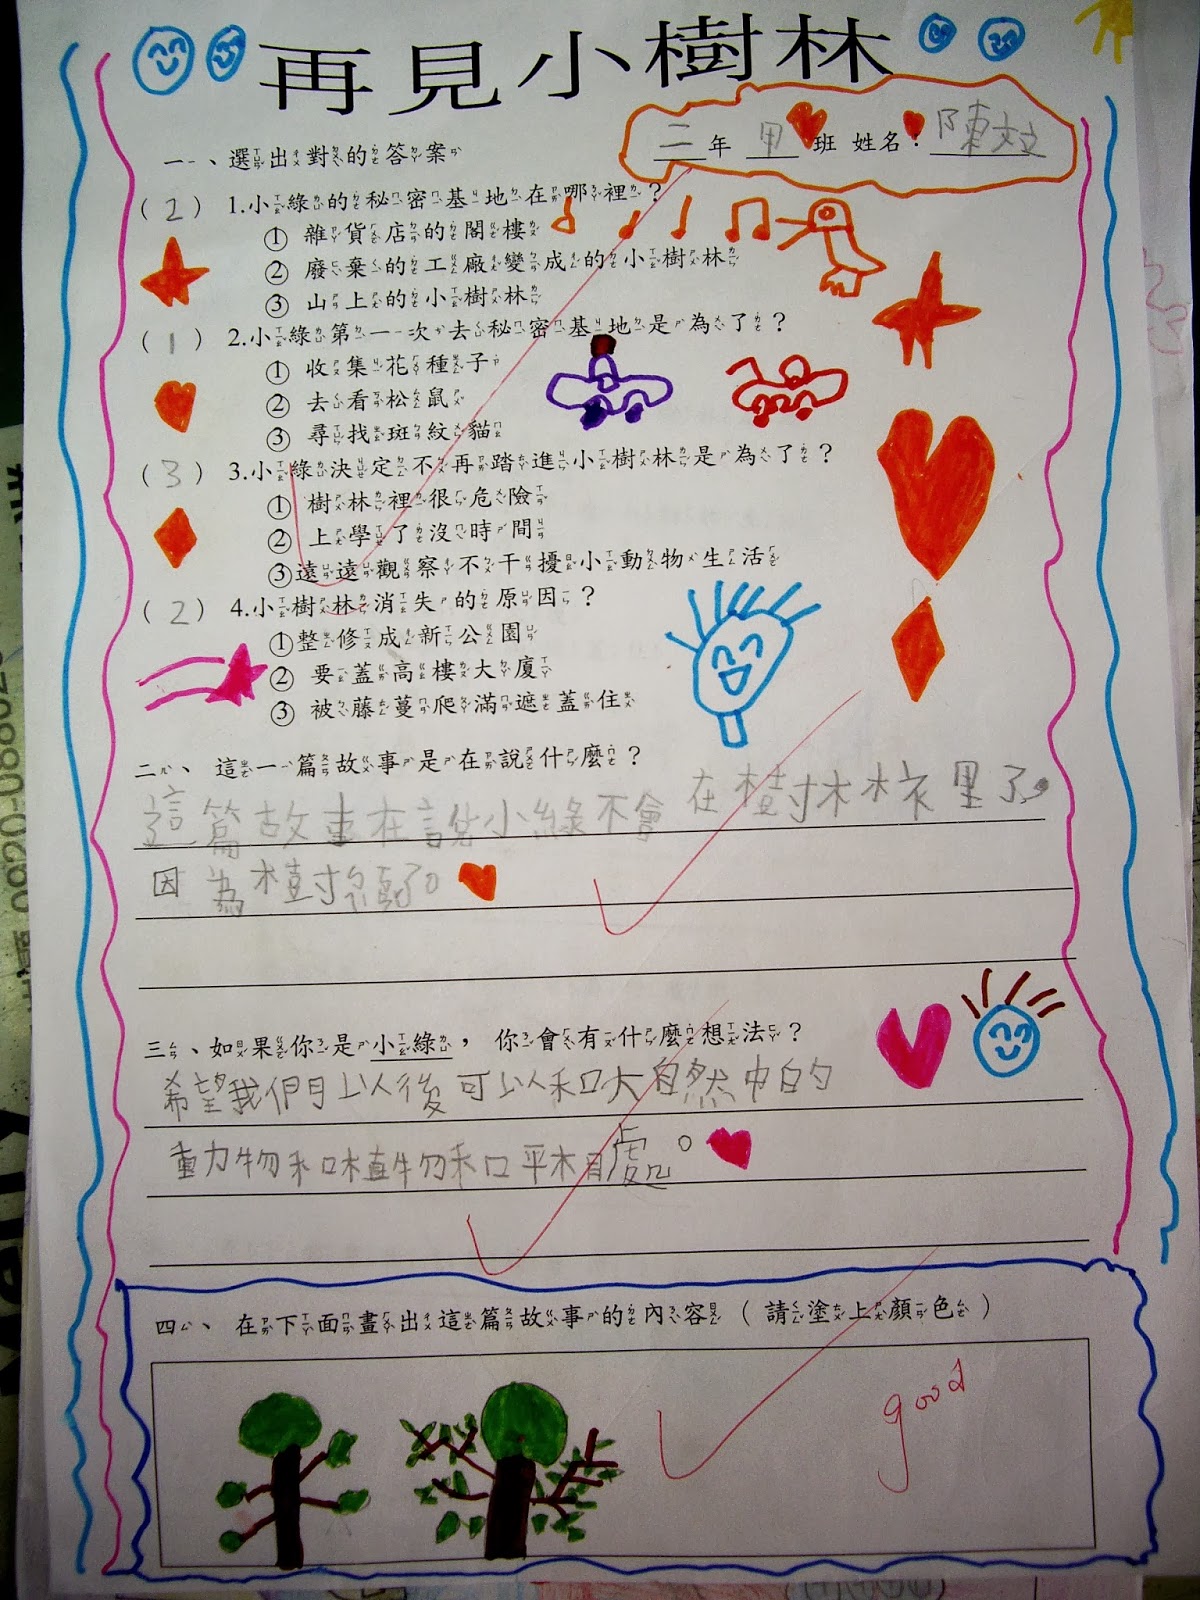 再見小樹林
二年 甲 班 姓名：陳
一、選出對的答案
(2) 1.小綠的秘密基地在哪裡？
① 雜貨店的閣樓
② 廢棄的工廠變成的小樹林
③ 山上的小樹林
(1) 2.小綠第一次去秘密基地是為了？
① 收集花種子
② 去看松鼠
③ 尋找斑紋貓
(3) 3.小綠決定不再踏進小樹林是為了？
① 樹林裡很危險
② 上學了沒時間
③遠遠觀察不干擾小動物生活
(2) 4.小樹林消失的原因？
①整修成新公園
② 要蓋高樓大廈
③ 被藤蔓爬滿遮蓋住
二、 這一篇故事是在說什麼？
這篇故事在說小綠不會在樹林裡了。
因為樹
三、如果你是小綠， 你會有什麼想法？
希望我們以後可以和大自然中的
動物和植物和平相處。
四、 在下面畫出這篇故事的內容（請塗上顏色）
good